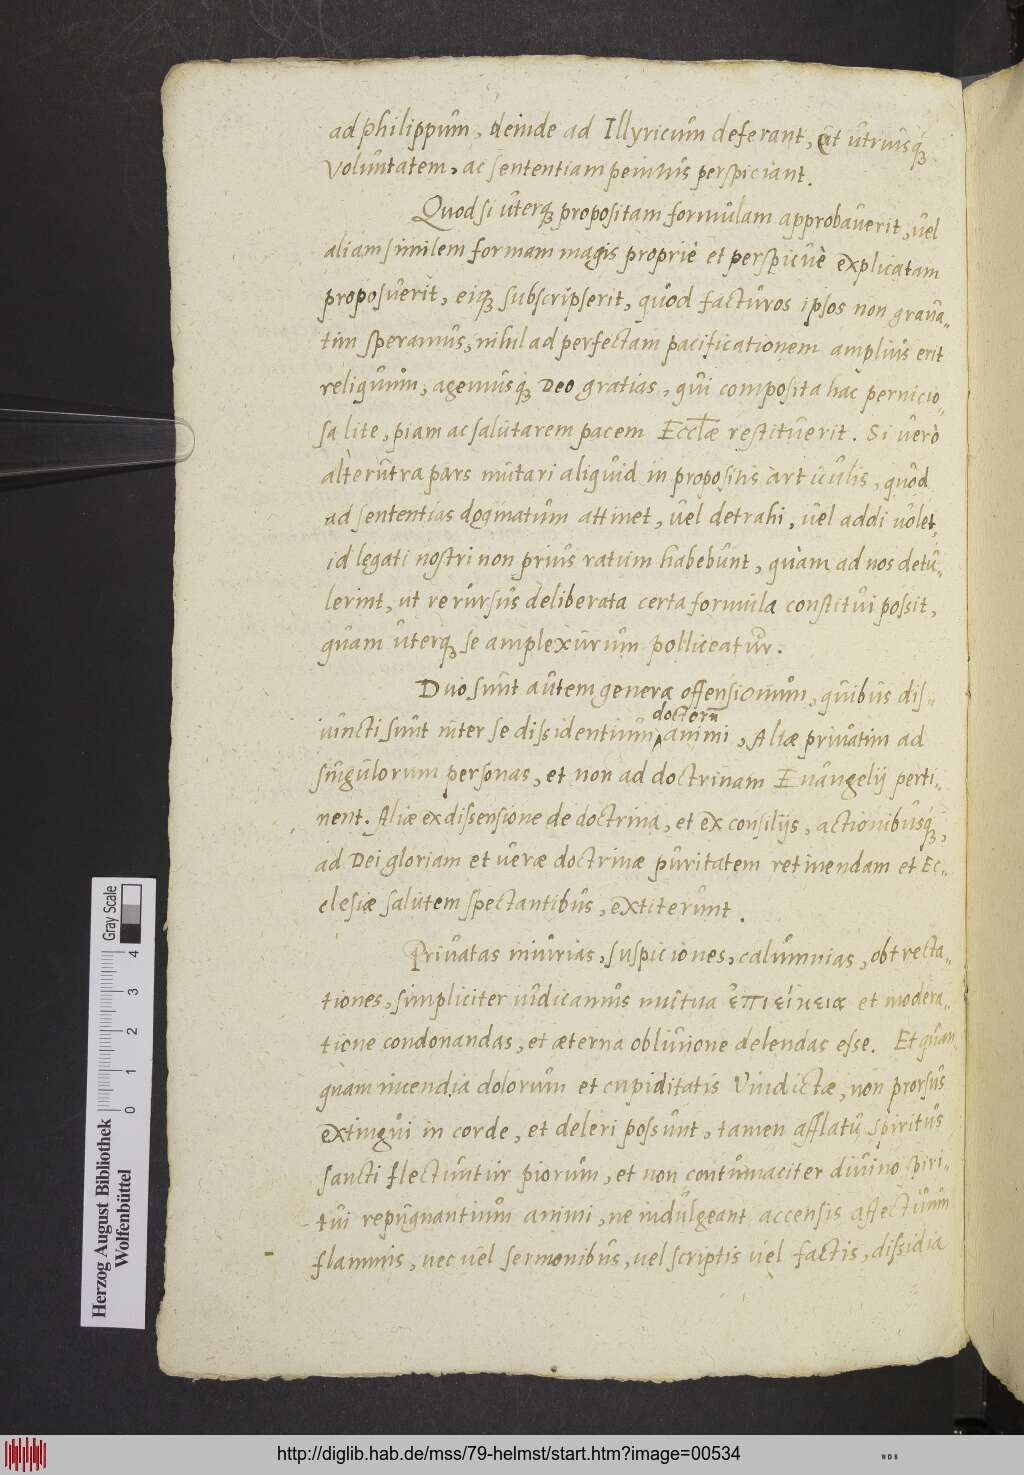 ad Philippum, deinde ad Illyricum deferant, ut utriusq́ꝫ
voluntatem, ac sententiam penitus perspiciant.
Quod si uterqꝫ propositam formulam approbaverit, vel
aliam similem formam magis propriè et perspicuè explicatam
proposuerit, eiqꝫ subscripserit, quod facturos ipsos non grava-
tim speramus, nihil ad perfectam pacificationem amplius erit
reliquum, agemusqꝫ Deo gratias, qui composita hac pernicio-
sa lite, piam ac salutarem pacem Eccłæ restituerit. Si verò
alterutra pars mutari aliquid in propositis articulis, quod
ad sententias dogmatum attinet, vel detrahi, vel addi volet,
id legati nostri non prius ratum habebunt, quàm ad nos detu-
lerint, ut rerursus deliberata certa formula constitui possit,
quam uterqꝫ se amplexurum polliceatur.
Duo sunt autem genera offensionum, quibus dis-
doctorū
iuncti sunt inter se dissidentium animi, Aliæ privatim ad
singulorum personas, et non ad doctrinam Evangelij perti-
nent. Aliæ ex dissensione de doctrina, et ex consilijs, actionibusq́ꝫ,
ad Dei gloriam et veræ doctrinæ puritatem retinendam et Ec-
clesiæ salutem spectantibus, extiterunt.
Privatas iniurias, suspiciones, calumnias, obtrecta-
tiones, simpliciter iudicamus mutua ἐπιείκεια et modera-
tione condonandas, et æterna oblivione delendas esse. Et quan
quam incendia dolorum et cupiditatis Vindictæ, non prorsus
extingui in corde, et deleri possunt, tamen afflatu spiritus
sancti flectuntur piorum, et non contumaciter divino spiri-
tui repugnantium animi, ne indulgeant accensis affectuum
flammis, nec vel sermonibus, vel scriptis vel factis, dissidia
Herzog August Bibliothek
Wolfenbüttel
0 1 2 3 4
Gray Scale
http://diglib.hab.de/mss/79-helmst/start.htm?image=00534
WDB